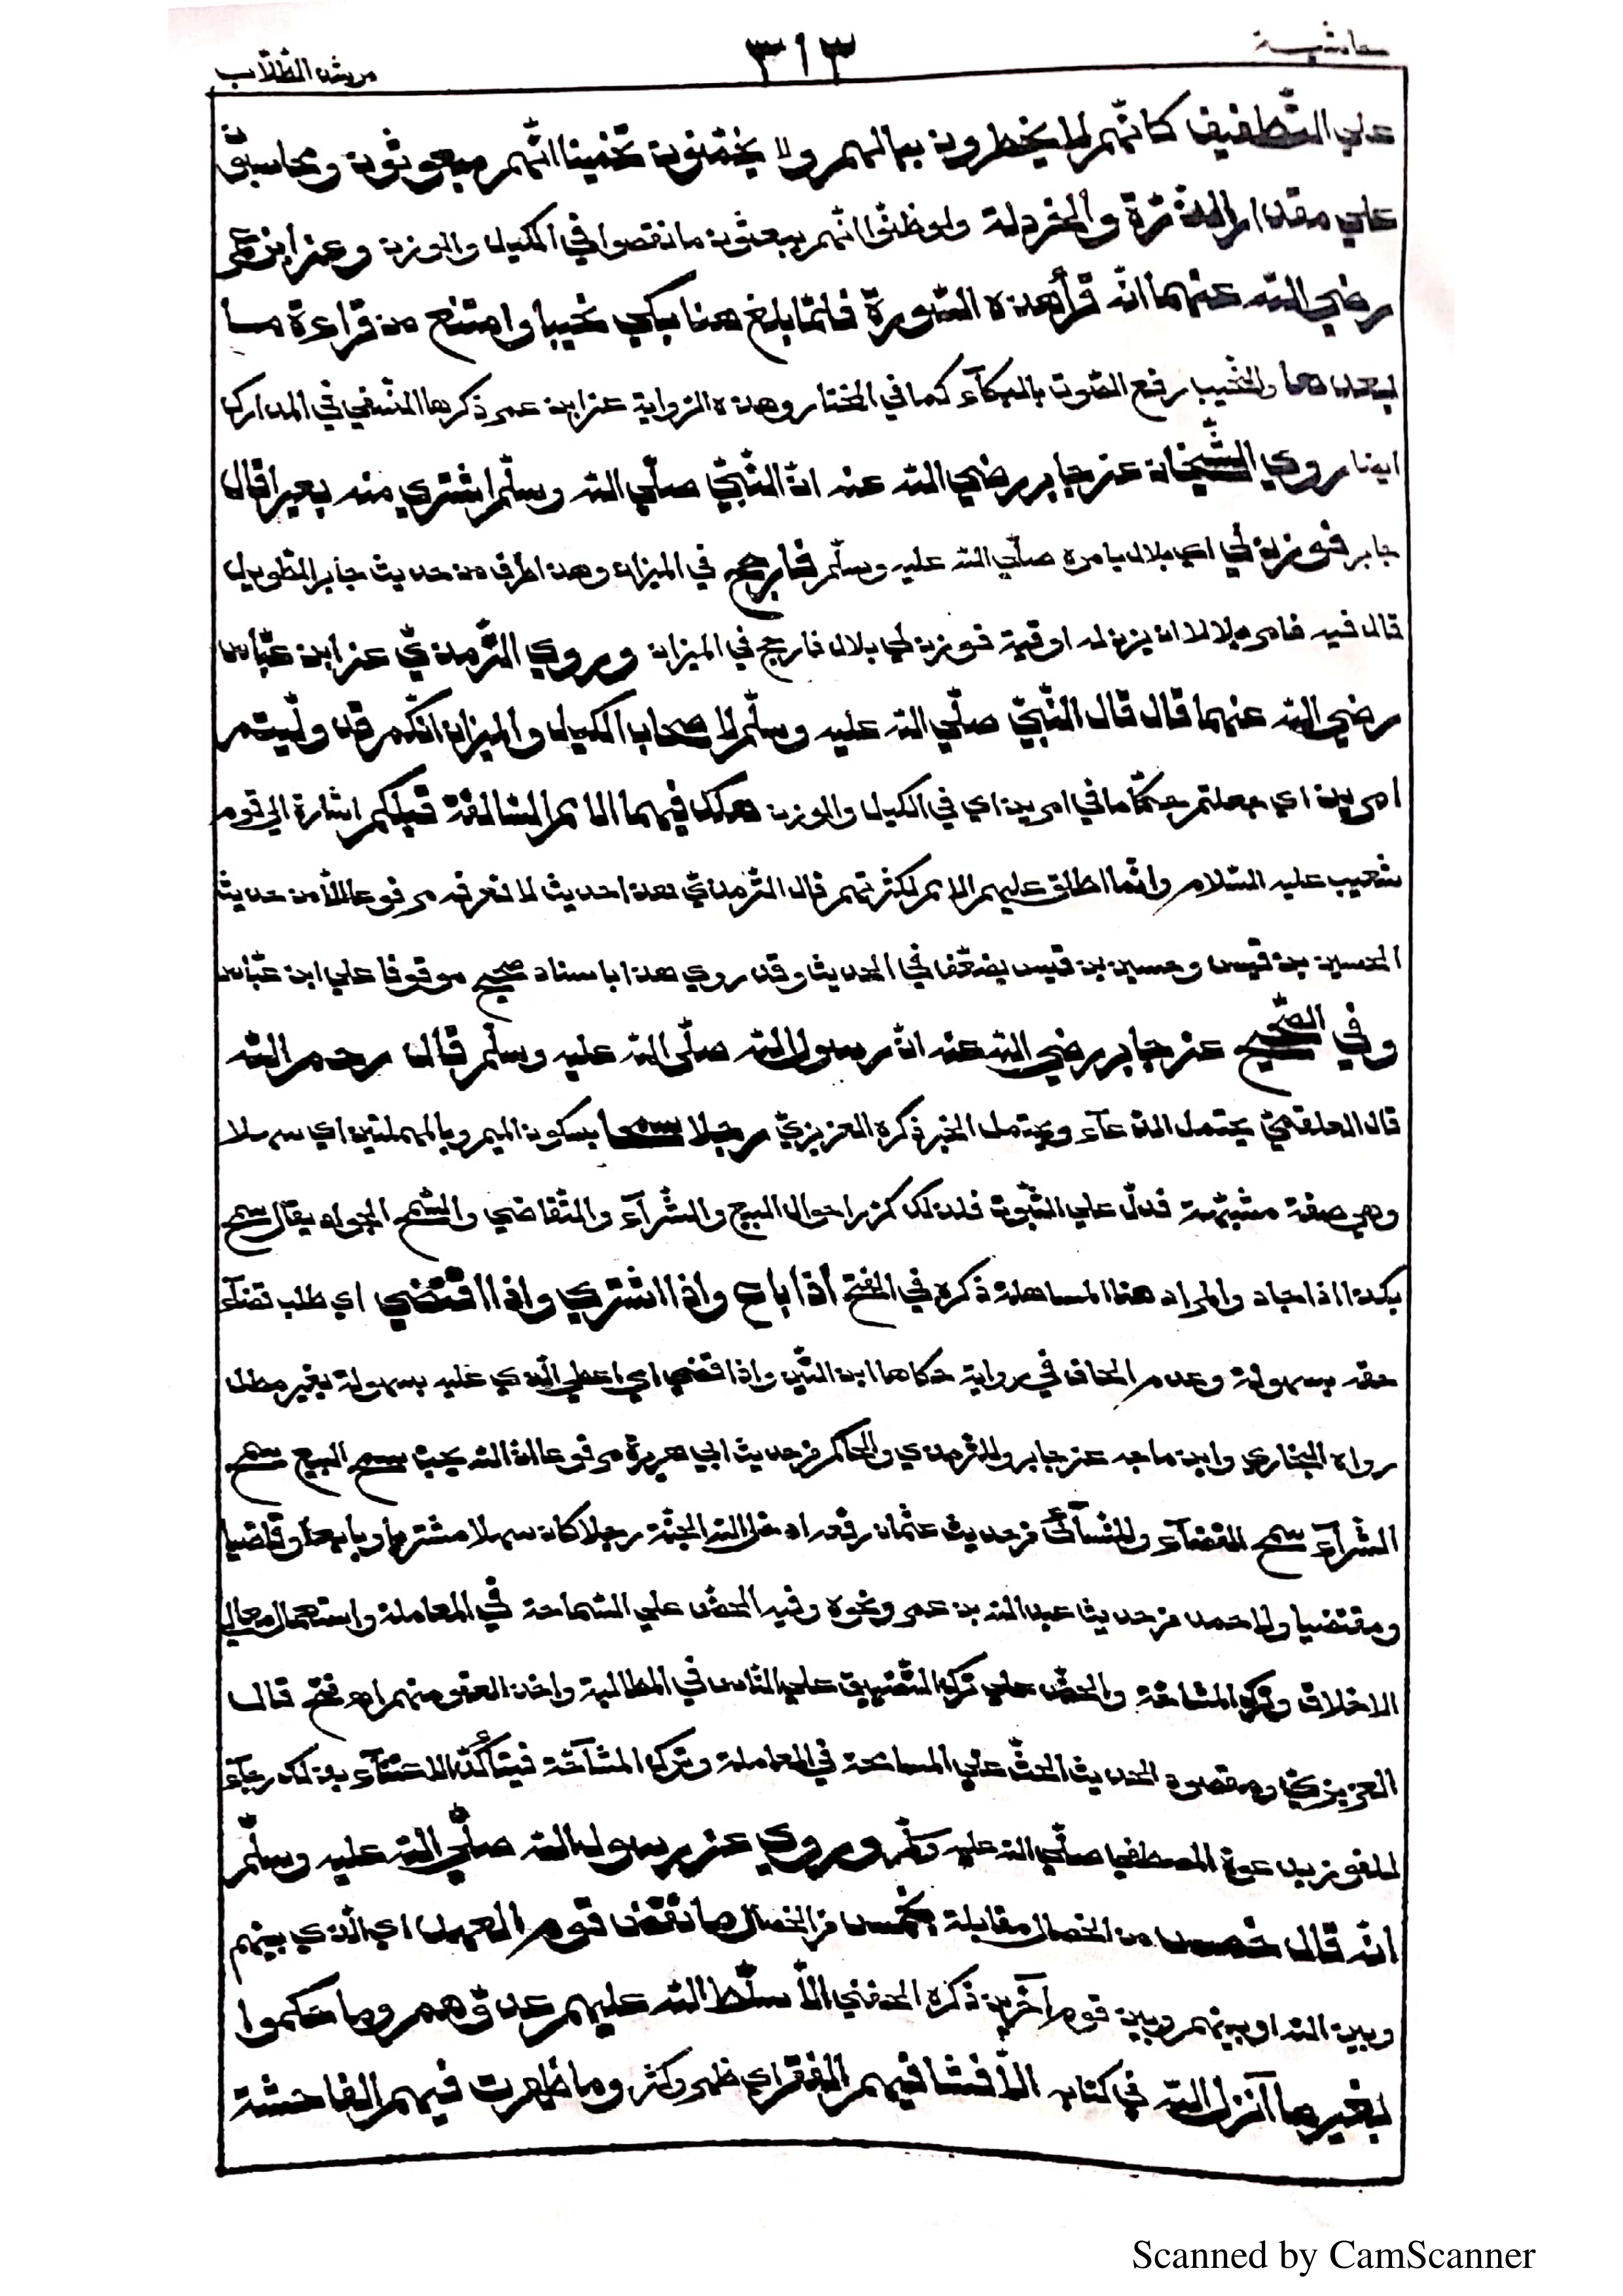 حاشية
٣١٣
مرشد الطّلّاب
علي التّطفيف كانّهم لا يخطرون ببالهم ولا يخمّنون تخمينا انّهم مبعوثون ومحاسبون
علي مقدار الذّرّة والخردلة ولو ظنّوا انّهم يبعثون ما نقصوا في الكيل والوزن وعن ابن عمر
رضي الله عنهما انّه قرأ هذه السّورة فلمّا بلغ هنا بكي نحيبا وامتنع من قراءة ما
بعدها والنّحيب رفع الصّوت بالبكآء كما في المختار وهذه الرّواية عن ابن عمر ذكرها النّسفي في المدارك
ايضا روي الشّيخان عن جابر رضي الله عنه انّ النّبيّ صلّي الله وسلّم اشتري منه بعيرا قال
جابر فوزن لي اي بلال بامره صلّي الله عليه وسلّم فارجح في الميزان وهذا طرف من حديث جابر الطّويل
قال فيه فامر بلالا ان يزن له اوقية فوزن لي بلال فارجح في الميزان وروي التّرمذيّ عن ابن عبّاس
رضي الله عنهما قال قال النّبيّ صلّي الله عليه وسلّم لاصحاب الكيل والميزان انّكم قد ولّيتم
امرين اي جعلتم حكّاما في امرين اي في الكيل والوزن هلك فيهما الامم السّالفة قبلكم اشارة الي قوم
شعيب عليه السّلام وانّما اطلق عليهم الامم لكثرتهم قال التّرمذيّ هذا حديث لا نعرفه مرفوعا الّا من حديث
الحسين بن قيس وحسين بن قيس يضعّف في الحديث وقد روي هذا باسناد صحيح موقوفا علي ابن عبّاس
وفي الصّحيح عن جابر رضي الله عنه انّ رسول الله صلّي الله عليه وسلّم قال رحم الله
قال العلقميّ يحتمل الدّعآء ويحتمل الخبر ذكره العزيزيّ رجلا سمحا بسكون الميم وبالمهملتين اي سهلا
وهي صفة مشبّهة فدلّ علي الثّبوت فلذلك كرّر احوال البيع والشّرآء والتّقاضي والسّمح الجواد يقال سمح
بكذا اذا جاد والمراد هنا المساهلة ذكره في الفتح اذا باع واذا اشتري واذا اقتضي اي طلب قضآء
حقه بسهولة وعدم الحاف في رواية حكاها ابن التّين واذا قضي اي اعطي الّذي عليه بسهولة بغير مطل
رواه البخاري وابن ماجه عن جابر وللترمذي والحاكم من حديث ابي هريرة مرفوعا انّ الله يحبّ سمح البيع سمح
الشّرآء سمح القضآء وللنّسآئيّ من حديث عثمان رفعه ادخل الله الجنّة رجلا كان سهلا مشتريا وبايعا وقاضيا
ومقتضيا ولاحمد من حديث عبد الله بن عمر ونحوه وفيه الحضّ علي السّماحة في المعاملة واستعمال معالي
الاخلاق وترك المشاحّة والحضّ علي ترك التّضييق علي النّاس في المطالبة واخذ العفو منهم اه فتح قال
العزيزيّ ومقصود الحديث الحثّ علي المسامحة في المعاملة وترك المشآحّة فيتأكّد الاعتنآء بذلك رجآء
للفوز بدعوة المصطفي صلّي الله عليه وسلّم وروي عن رسول الله صلّي الله عليه وسلّم
انّه قال خمس من الخصال مقابلة بخمس من الخصال ما نقض قوم العهد اي الّذي بينهم
وبين الله او بينهم وبين قوم آخرين ذكره الحفني الّا سلّط الله عليهم عدوّهم وما حكموا
بغير ما آنزل الله في كتابه الّا فشا فيهم الفقر اي ظهر وكثر وما ظهرت فيهم الفاحشة
Scanned by CamScanner